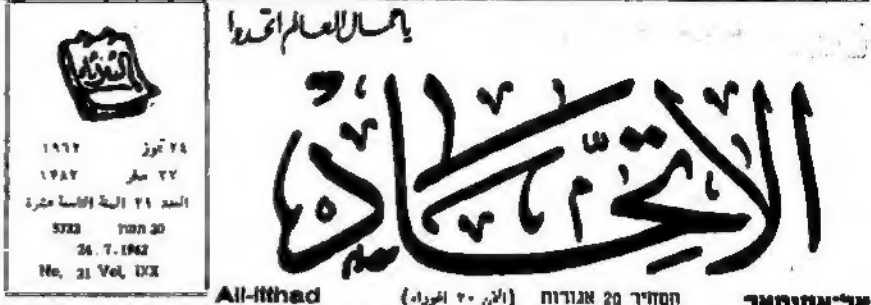 يا عمال العالم اتحدوا
الاتحاد
الثلاثاء
٢٤ تموز ١٩٦٢
٢٢ صفر ١٣٨٢
العدد ٢١ السنة التاسعة عشرة
24.7.1962
No, 21 Vol, IXX
All-Itthad
(الثمن ٢٠ اغورة)
המחיר 20 אגורות
אל־אתיחאד